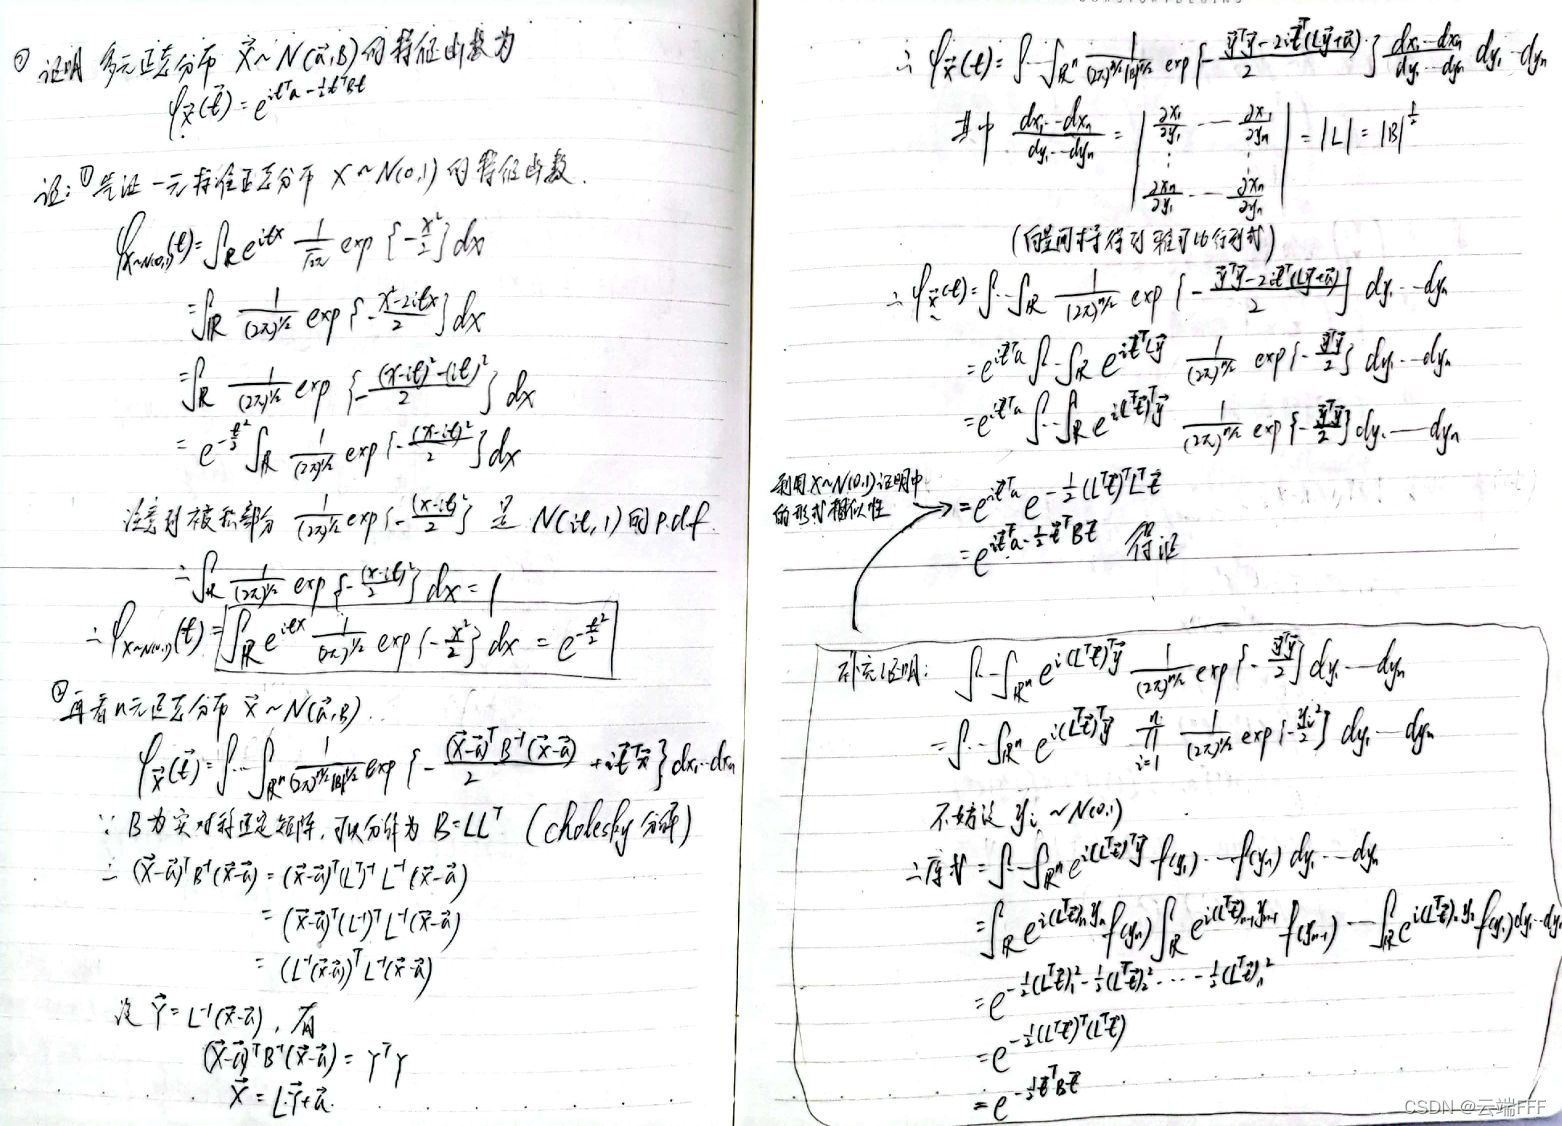 证明 多元正态分布 X⃗~N(a⃗,B) 的特征函数为
φ_X⃗(t⃗) = e^{it⃗ᵀa - ½t⃗ᵀBt}
证: ① 先证一元标准正态分布 X~N(0,1) 的特征函数.
φ_{X~N(0,1)}(t) = ∫_R e^{itx} 1/√2π exp{-x²/2}dx
= ∫_R 1/(2π)^{1/2} exp{-(x²-2itx)/2}dx
= ∫_R 1/(2π)^{1/2} exp{-((x-it)²-(it)²)/2}dx
= e^{-t²/2} ∫_R 1/(2π)^{1/2} exp{-(x-it)²/2}dx
注意到被积部分 1/(2π)^{1/2} exp{-(x-it)²/2} 是 N(it,1) 的 p.d.f.
∴ ∫_R 1/(2π)^{1/2} exp{-(x-it)²/2}dx = 1
∴ φ_{X~N(0,1)}(t) = ∫_R e^{itx} 1/(2π)^{1/2} exp{-x²/2}dx = e^{-t²/2}
② 再看n元正态分布 X⃗~N(a⃗,B).
φ_X⃗(t⃗) = ∫···∫_{Rⁿ} 1/((2π)^{n/2}|B|^{1/2}) exp{-(x⃗-a⃗)ᵀB⁻¹(x⃗-a⃗)/2 + it⃗ᵀx⃗}dx₁···dxₙ
∵ B为实对称正定矩阵, 可以分解为 B=LLᵀ (cholesky 分解)
∴ (x⃗-a⃗)ᵀB⁻¹(x⃗-a⃗) = (x⃗-a⃗)ᵀ(Lᵀ)⁻¹L⁻¹(x⃗-a⃗)
= (x⃗-a⃗)ᵀ(L⁻¹)ᵀL⁻¹(x⃗-a⃗)
= (L⁻¹(x⃗-a⃗))ᵀL⁻¹(x⃗-a⃗)
设 Y⃗=L⁻¹(x⃗-a⃗), 有
(x⃗-a⃗)ᵀB⁻¹(x⃗-a⃗) = YᵀY
X⃗ = LY⃗+a⃗
∴ φ_X⃗(t) = ∫···∫_{Rⁿ} 1/((2π)^{n/2}|B|^{1/2}) exp{-(y⃗ᵀy⃗-2it⃗ᵀ(Ly⃗+a⃗))/2} (dx₁···dxₙ)/(dy₁···dyₙ) dy₁···dyₙ
其中 (dx₁···dxₙ)/(dy₁···dyₙ) = | ∂x₁/∂y₁ ··· ∂x₁/∂yₙ ⋮ ⋮ ∂xₙ/∂y₁ ··· ∂xₙ/∂yₙ | = |L| = |B|^{1/2}
(向量间求导得到雅可比行列式)
∴ φ_X⃗(t) = ∫···∫_R 1/(2π)^{n/2} exp{-(y⃗ᵀy⃗-2it⃗ᵀ(Ly⃗+a⃗))/2} dy₁···dyₙ
= e^{it⃗ᵀa} ∫···∫_R e^{it⃗ᵀLy⃗} 1/(2π)^{n/2} exp{-y⃗ᵀy⃗/2} dy₁···dyₙ
= e^{it⃗ᵀa} ∫···∫_R e^{i(Lᵀt⃗)ᵀy⃗} 1/(2π)^{n/2} exp{-y⃗ᵀy⃗/2} dy₁···dyₙ
利用X~N(0,1)证明中
的形式相似性
= e^{it⃗ᵀa} e^{-½(Lᵀt⃗)ᵀLᵀt⃗}
= e^{it⃗ᵀa-½t⃗ᵀBt⃗} 得证
补充证明: ∫···∫_{Rⁿ} e^{i(Lᵀt⃗)ᵀy⃗} 1/(2π)^{n/2} exp{-y⃗ᵀy⃗/2} dy₁···dyₙ
= ∫···∫_{Rⁿ} e^{i(Lᵀt⃗)ᵀy⃗} ∏_{i=1}^{n} 1/(2π)^{1/2} exp{-yᵢ²/2} dy₁···dyₙ
不妨设 yᵢ ~N(0,1)
∴ 原式 = ∫···∫_{Rⁿ} e^{i(Lᵀt⃗)ᵀy⃗} f(y₁)···f(yₙ) dy₁···dyₙ
= ∫_R e^{i(Lᵀt⃗)ₙyₙ} f(yₙ) ∫_R e^{i(Lᵀt⃗)ₙ₋₁yₙ₋₁} f(yₙ₋₁) ··· ∫_R e^{i(Lᵀt⃗)₁y₁} f(y₁)dy₁···dyₙ
= e^{-½(Lᵀt⃗)₁²-½(Lᵀt⃗)₂²-···-½(Lᵀt⃗)ₙ²}
= e^{-½(Lᵀt⃗)ᵀ(Lᵀt⃗)}
= e^{-½t⃗ᵀBt⃗}
CSDN @云端FFF